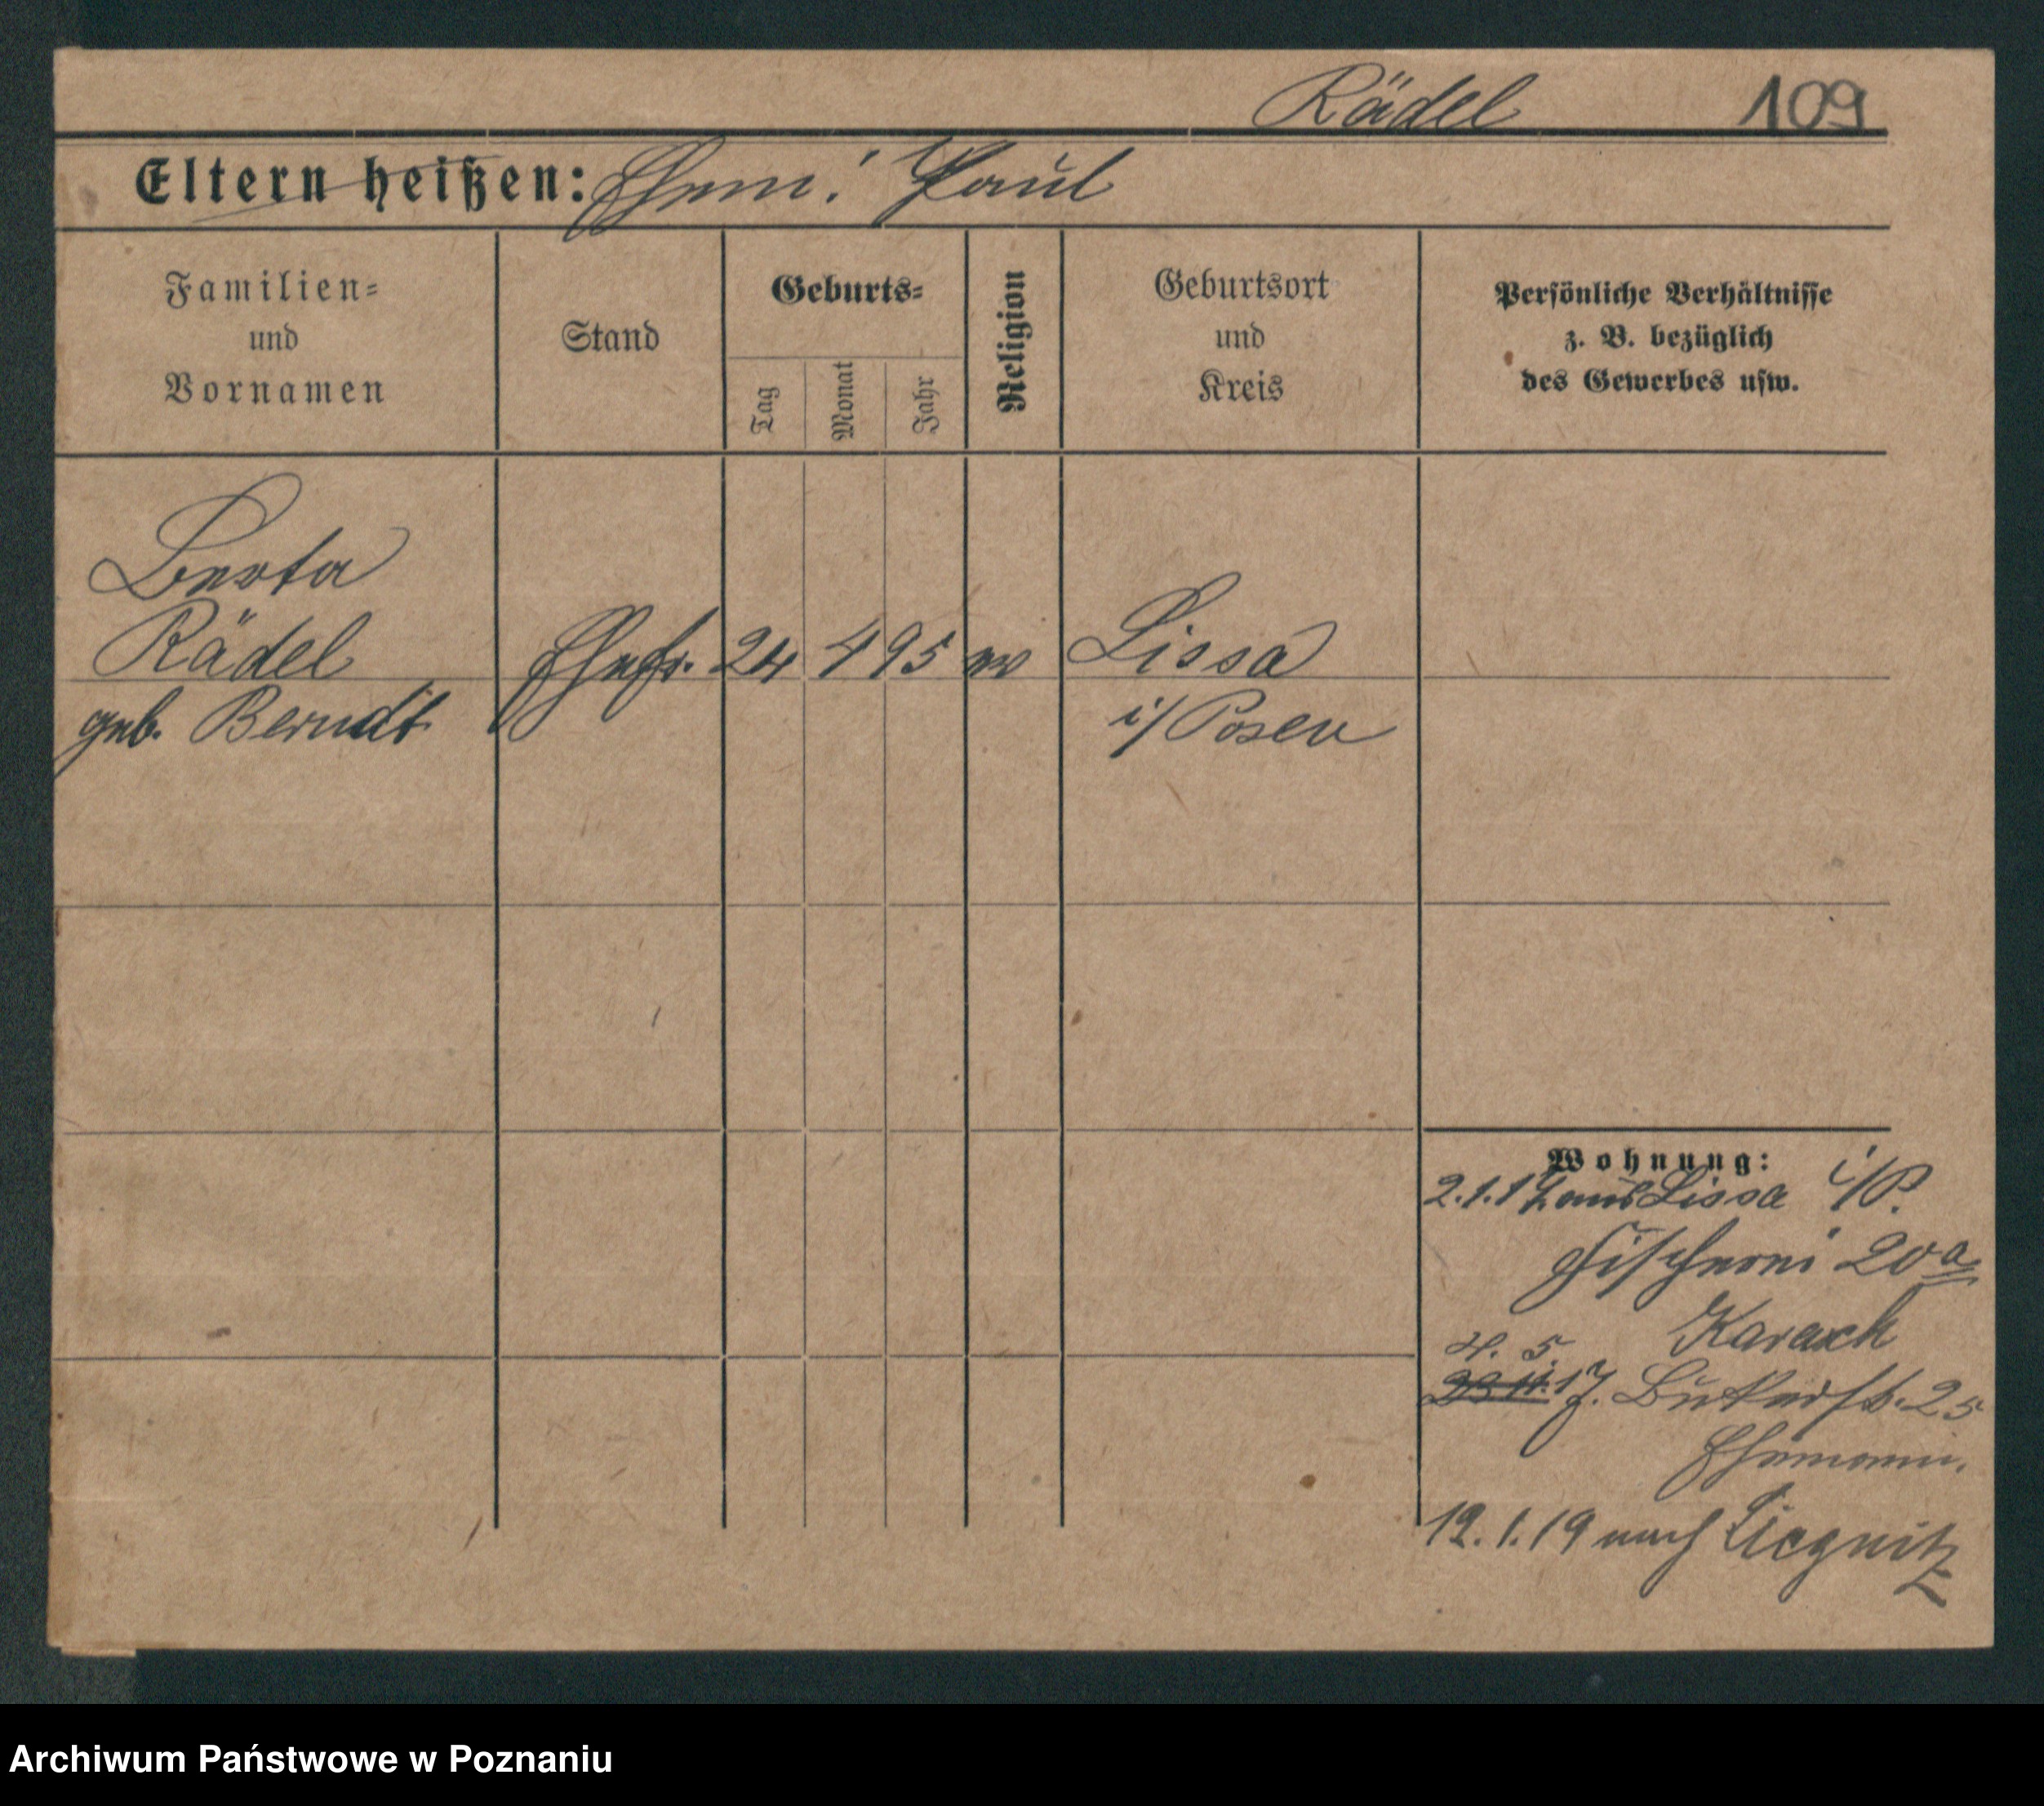 Rädel 109
Eltern heißen: Ehem: Paul
Familien-
und
Vornamen
Stand
Geburts-
Tag
Monat
Jahr
Religion
Geburtsort
und
Kreis
Persönliche Verhältnisse
z. B. bezüglich
des Gewerbes usw.
Berta
Rädel
geb. Berndt
Ehefr. 24 4 95 Lissa
i/Posen
Wohnung:
2.1.17 aus Lissa i/P.
Fischerei 20a
4. 5.
17. 25
Ehemann.
12.1.19 nach Liegnitz
Archiwum Państwowe w Poznaniu